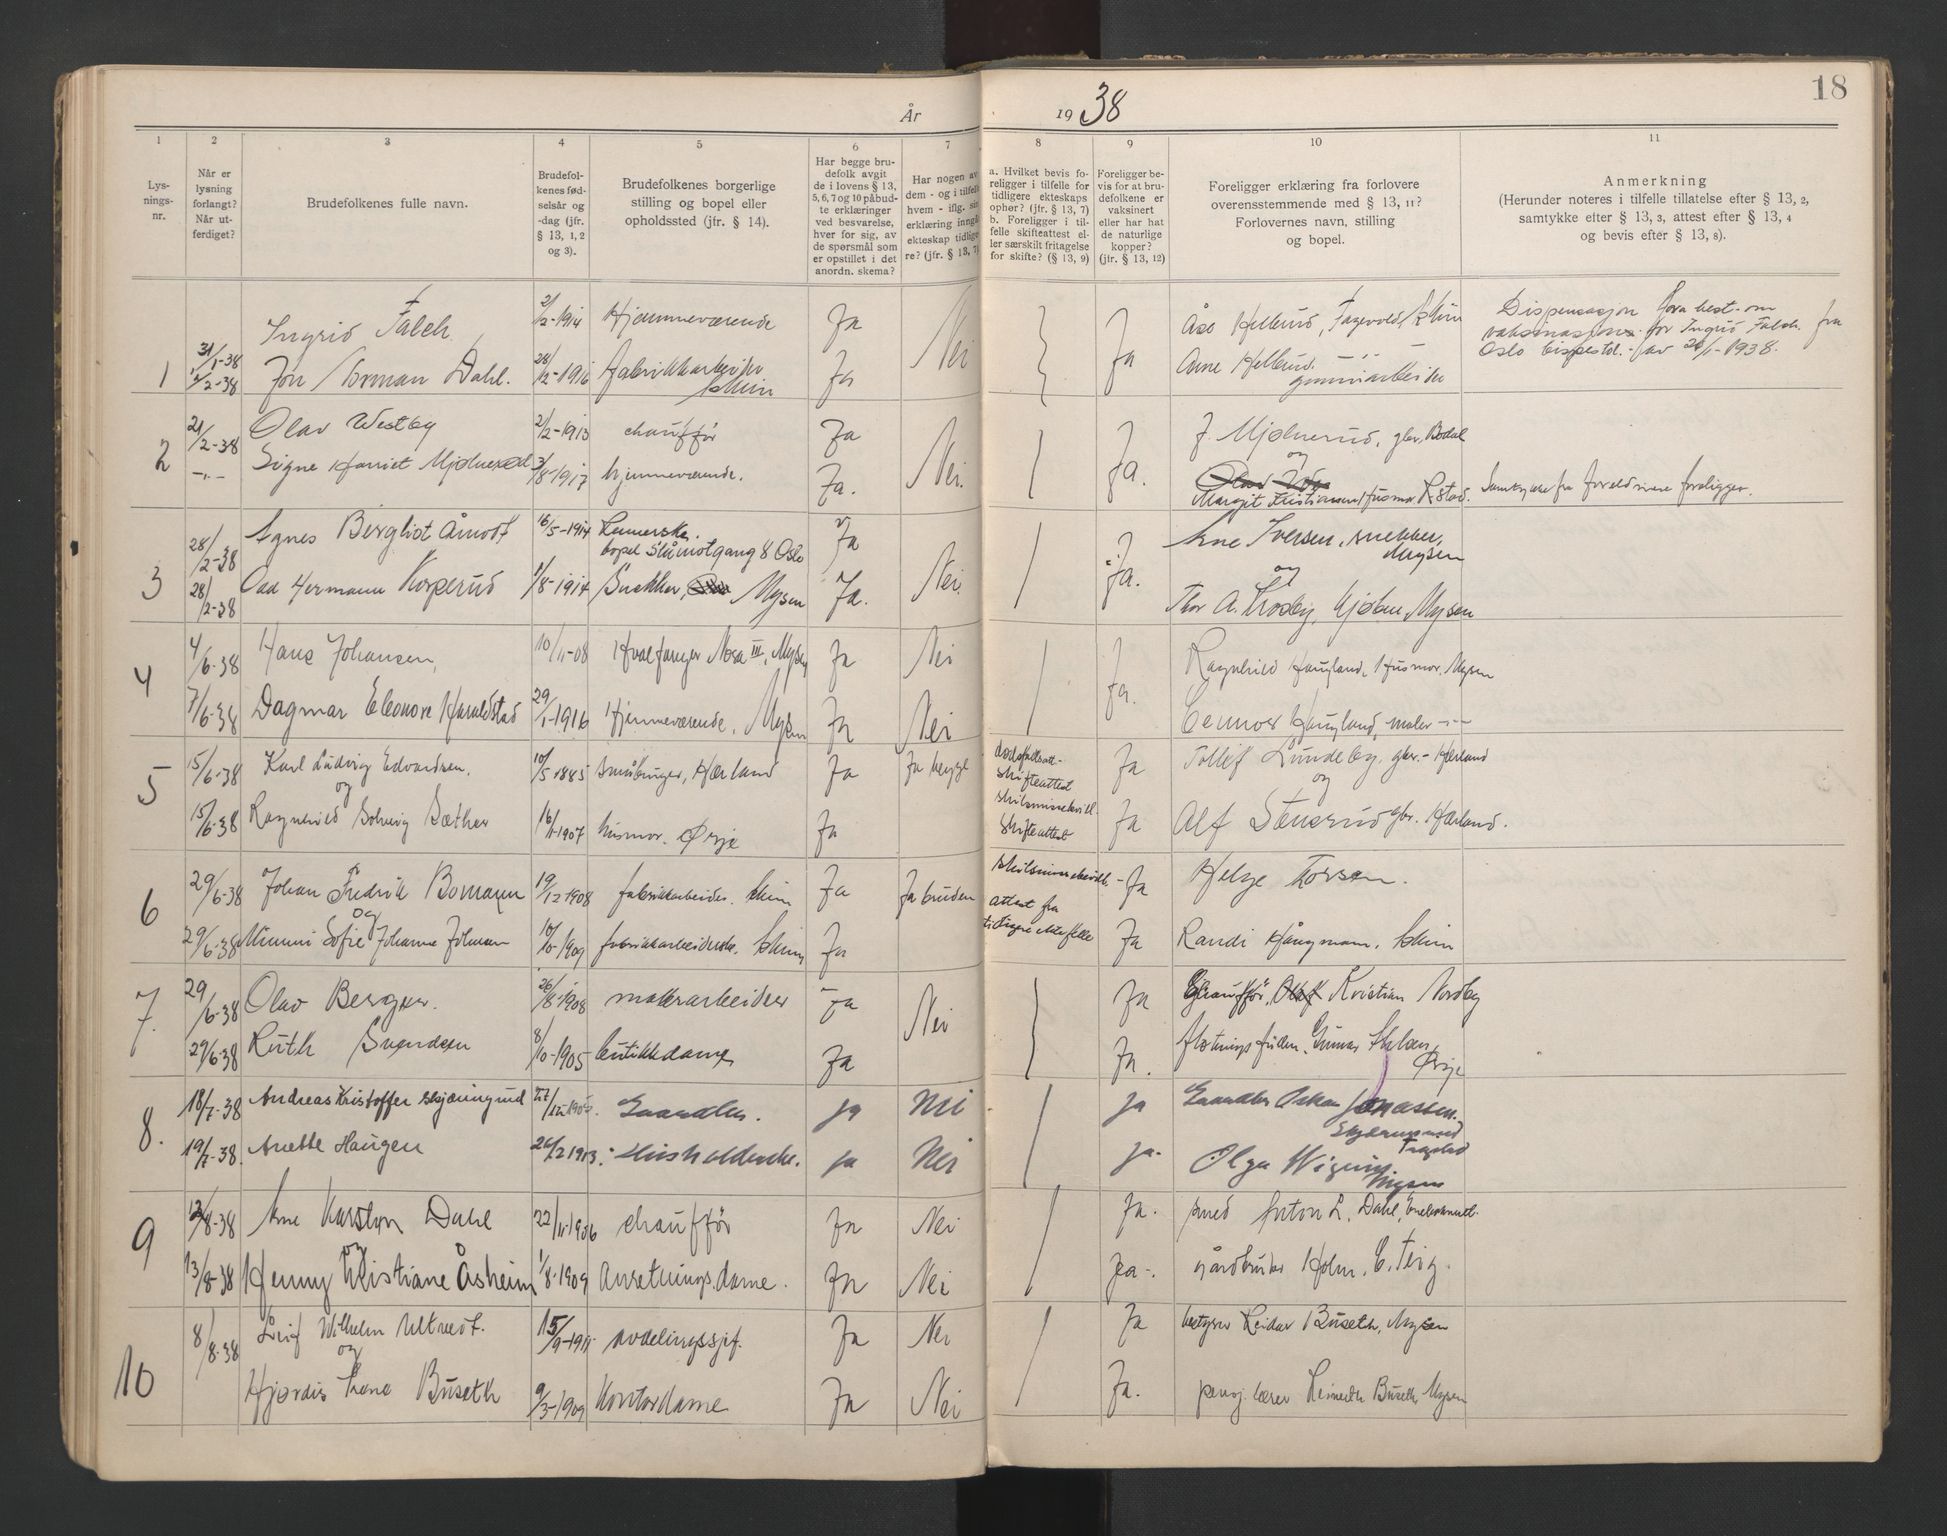 År 1938
18
1
2
3
4
5
6
7
8
9
10
11
Lys-
nings-
nr.
Når er
lysning
forlangt?
Når ut-
ferdiget?
Brudefolkenes fulle navn.
Brudefol-
kenes fød-
selsår og
-dag (jfr.
§ 13, 1, 2
og 3).
Brudefolkenes borgerlige
stilling og bopel eller
opholdssted (jfr. § 14).
Har begge bru-
defolk avgit
de i lovens § 13,
5, 6, 7 og 10 påbud-
te erklæringer
ved besvarelse,
hver for sig, av
de spørsmål som
er opstillet i det
anordn. skema?
Har nogen av
dem - og i tilfelle
hvem - iflg. sin
erklæring inngått
ekteskap tidlige-
re? (jfr. § 13, 7)
a. Hvilket bevis fo-
religger i tilfelle for
tidligere ekteskaps
ophør? (jfr. § 13, 7)
b. Foreligger i til-
felle skifteattest el-
ler særskilt fritagelse
for skifte? (§ 13, 9)
Foreligger be-
vis for at bru-
defolkene er
vaksinert
eller har hat
de naturlige
kopper?
(jfr. § 13, 12)
Foreligger erklæring fra forlovere
overensstemmende med § 13, 11?
Forlovernes navn, stilling
og bopel.
Anmerkning
(Herunder noteres i tilfelle tillatelse efter § 13, 2,
samtykke efter § 13, 3, attest efter § 13, 4
og bevis efter § 13, 8).
Ingrid Falch 2/2-1914 Hjemmeværende Ja Nei Åse Hellerud, Fagevold, Skim
Dispensasjon fra best. om
vaksinasjon for Ingrid Falch fra
Oslo bispestol av 1938.
1 31/1-38 2/2-38 Jon Norman Dahl. 28/2-1916 Fabrikkarbeider Ja Ja Anne Hellerud
Skim gummiarbeider
2 21/2-38 Olav Westby 2/2-1913 chauffør Ja Nei. Ja. J. Mjølnerud, gbr, Bodal
og
-"- Signe Harriet Mjølnerød 3/8-1917 hjemmeværende. Ja.
Margit Kristiansen, husmor Samtykke fra foreldrene foreligger.
3 28/2-38 Agnes Bergliot Åmodt 16/5-1914 bopel gang 8 Oslo Ja Nei. Ja. Arne Iversen, snekker,
Mysen
og
28/2-38 Odd Hermann Korperud 1/8-1914 Snekker, Mysen Ja. Thor A. Mysen
4 4/6-38 Hans Johansen, 10/11-08 Hvalfanger Nosa III, Mysen Ja Nei Ragnhild Haugland, Husmor, Mysen
7/6-38 Dagmar Eleonore Haraldstad 29/1-1916 Hjemmeværende, Mysen Ja Nei Ja. Haugland, maler -"-
5 15/6-38 Karl Ludvig Edvardsen. 10/5-1885 småbruger, Hærland Ja Ja begge
dødsfallsatt-
skifteattest
skilsmissebevill.
skifteattest
Ja Tollef Lundeby, gbr. - Hærland
og og
15/6-38 Ragnhild Solveig Sæther 16/11-1907 husmor. Ørje Ja Ja Alf Stenerud gbr. Hærland.
6 29/6-38 Johan Fredrik Bomann 19/12-1908 fabrikkarbeider. Skim Ja Ja bruden
skilsmissebevill.
attest fra
tidligere ektefelle
Ja Helge Torsen.
og
29/6-38 Mimmi Sofie Johanne Johnsen 10/10-1909 fabrikkarbeiderske. Skim Ja Ja Randi Haugmann, Skim
7. 29/6-38 Olav Berger. 26/8-1908 Ja Nei Ja Chauffør, Kristian Nordby
29/6-38 Ruth Svendsen 8/10-1905 butikkdame Ja Ja. fløtningsfullm. Gunnar
Ørje
8. 18/7-38 Andreas Kristoffer 22/12-1905. Gaardbr. ja Nei ja Gaardbr Oskar Jonassen.
Trøgstad
19/7-38. Anette Haugen 26/2 1913. Husholderske. ja Nei ja. Olga
Mysen
9 12/8-38 Arne Karsten Dahl 22/11-1906 chauffør Ja Nei Ja. smed Anton L. Dahl,
og
13/8-38 Henny Kristiane Åsheim 1/8-1909 Anretningsdame. Ja Nei Ja-. gårdbruker Holm. E. Teig.
10 8/8-38 Leif Wilhelm Ultvedt. 15/9-1911 avdelingssjef. Ja Nei Ja bestyrer Reidar Buseth, Mysen
og
Hjørdis Irene Buseth 9/3-1909 Kontordame Ja Nei Ja. pensj. lærer Buseth, Mysen